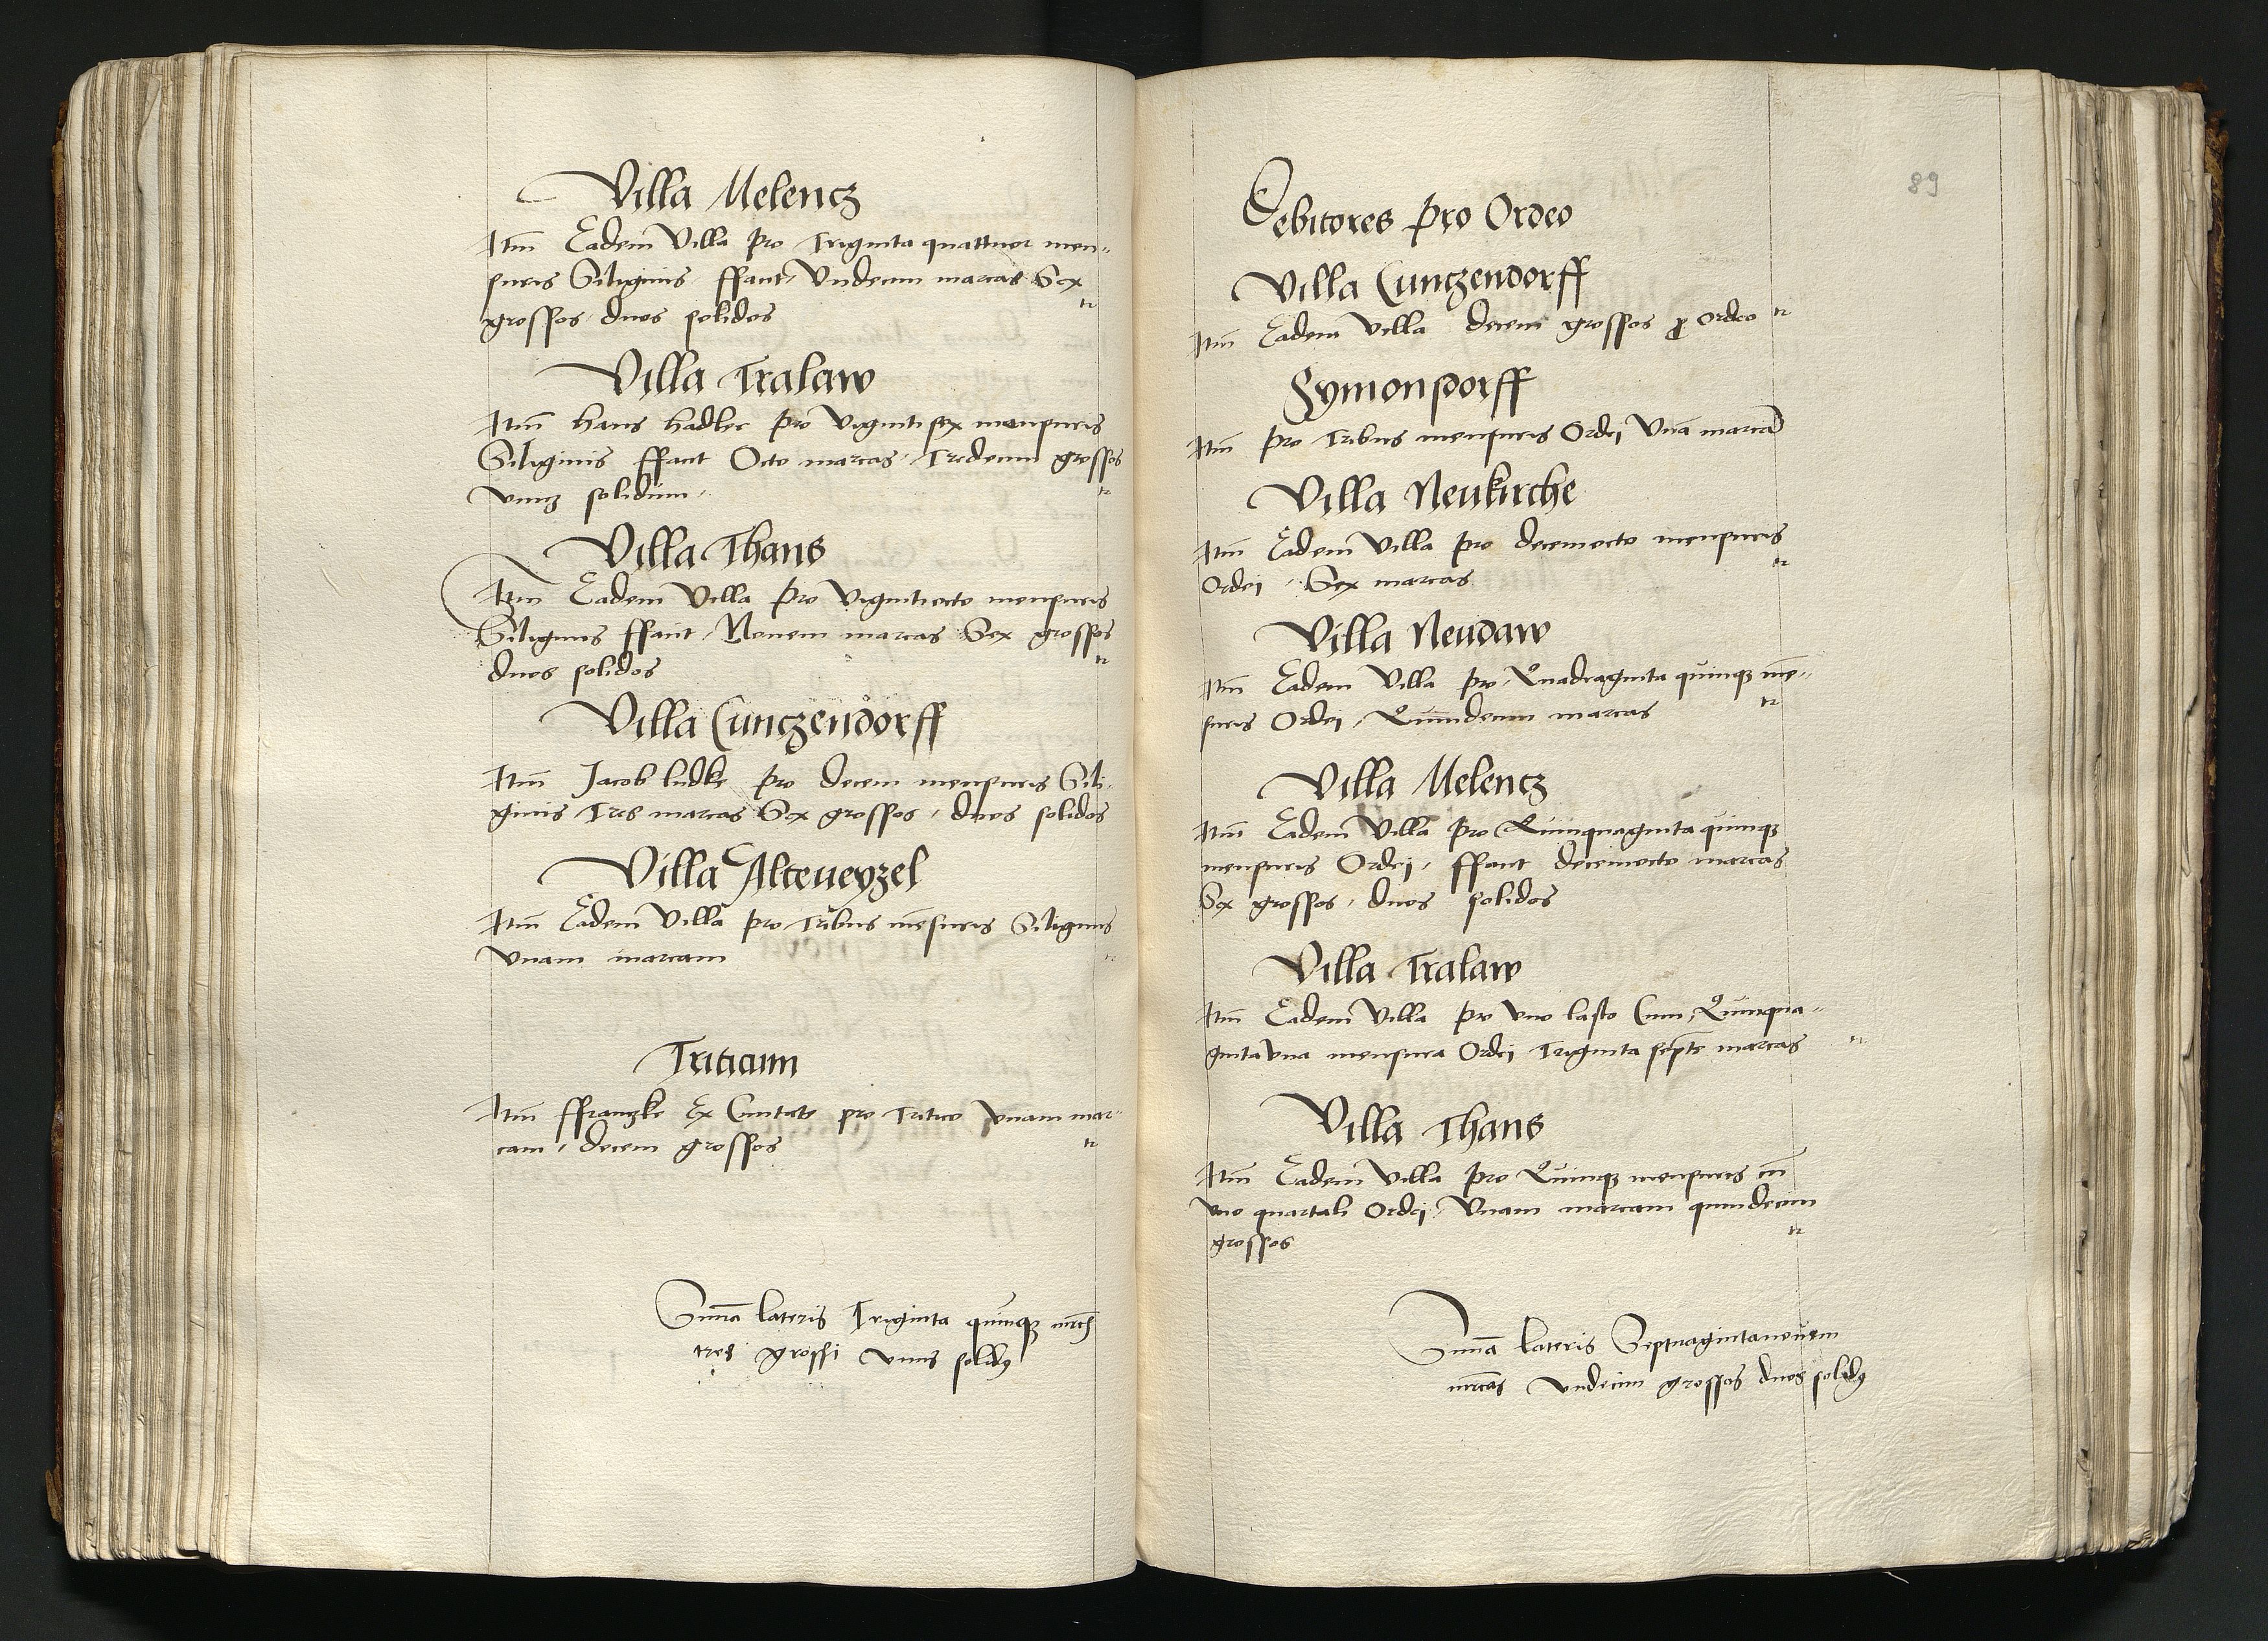 Villa Melencz
Itm̄ Eadem Villa pro Triginta quattuor men-
suris Siliginis ffacit Vndecim marcas Sex
grossos duos solidos
Villa Tralaw
Itm̄ Hans hadler pro viginti sex mensuris
Siliginis ffacit Octo marcas Tredecim grossos
vnū solidum
Villa Thans
Itm̄ Eadem Villa pro Vigintiocto mensuris
Siliginis ffacit Nouem marcas Sex grossos
duos solidos
Villa Cunczendorff
Itm̄ Jacob ludke pro decem mensuris Sili-
ginis Tres marcas Sex grossos duos solidos
Villa Alteueyzel
Itm̄ Eadem Villa pro Tribus mēsuris Siliginis
vnam marcam
Triticum
Itm̄ ffranczke Ex Ciuitate pro Tritico vnam mar-
cam decem grossos
Sum̄a lateris Triginta quinqz mrc̄
tres grossi vnus solidꝰ
89
Debitores pro Ordeo
Villa Cunczendorff
Itm̄ Eadem Villa decem grossos ꝓ ordeo
Symonsdorff
Itm̄ pro Tribus mensuris Ordei Vnā marcā
Villa Neukirche
Itm̄ Eadem Villa pro decemocto mensuris
Ordei Sex marcas
Villa Neudaw
Itm̄ Eadem Villa pro Quadraginta quinqz mē-
suris Ordei Quindecim marcas
Villa Melencz
Itm̄ Eadem Villa pro Quinquaginta quinqz
mensuris Ordei ffacit decemocto marcas
Sex grossos duos solidos
Villa Tralaw
Itm̄ Eadem Villa pro vno lasto Cum Quinqua-
ginta vna mensura Ordei Triginta septē marcas
Villa Thans
Itm̄ Eadem Villa pro Quinqz mensuris cū
vno quartali Ordei Vnam marcam quindecim
grossos
Sum̄a lateris Septuagintanouem
mrcas vndecim grossos duos solidꝰ